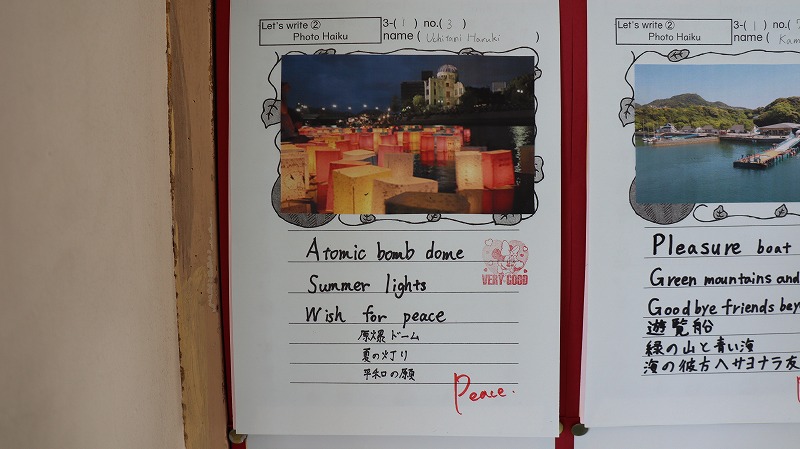 Let's write ②
Photo Haiku
3-( 1 ) no.( 3 )
name ( Uchitani Haruki )
Atomic bomb dome
Summer lights
Wish for peace
原爆ドーム
夏の灯り
平和の願
VERY GOOD
Peace.
Let's write ②
Photo Haiku
3-( 1 )
name ( Kam
Pleasure boat
Green mountains and
Goodbye friends bey
遊覧船
緑の山と青い海
海の彼方へサヨナラ友